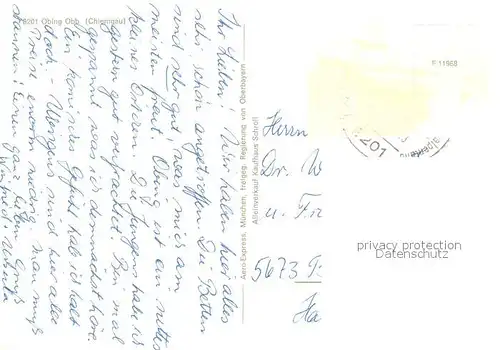 8201 Obing Obb. (Chiemgau)
Ihr Lieben! Wir haben hier alles
sehr schön angetroffen. Die Betten
sind sehr gut, was mich am
meisten freut. Obing ist ein nettes
kleines Örtchen. Die Jungens habe ich
gestern gut verfrachtet. Bin mal
gespannt was ich demnächst höre.
Ein komisches Gefühl hab ich halt
doch. - Übrigens sind hier alle
Preise enorm niedrig. Man muß
staunen! Euren ganz lieben Gruß
Winfried
Aero-Express, München, freigeg. Regierung von Oberbayern
Alleinverkauf Kaufhaus Schroll
F 11968
8201
Herrn
Dr. W
u. Fr
5673
Ha
privacy protection
Datenschutz